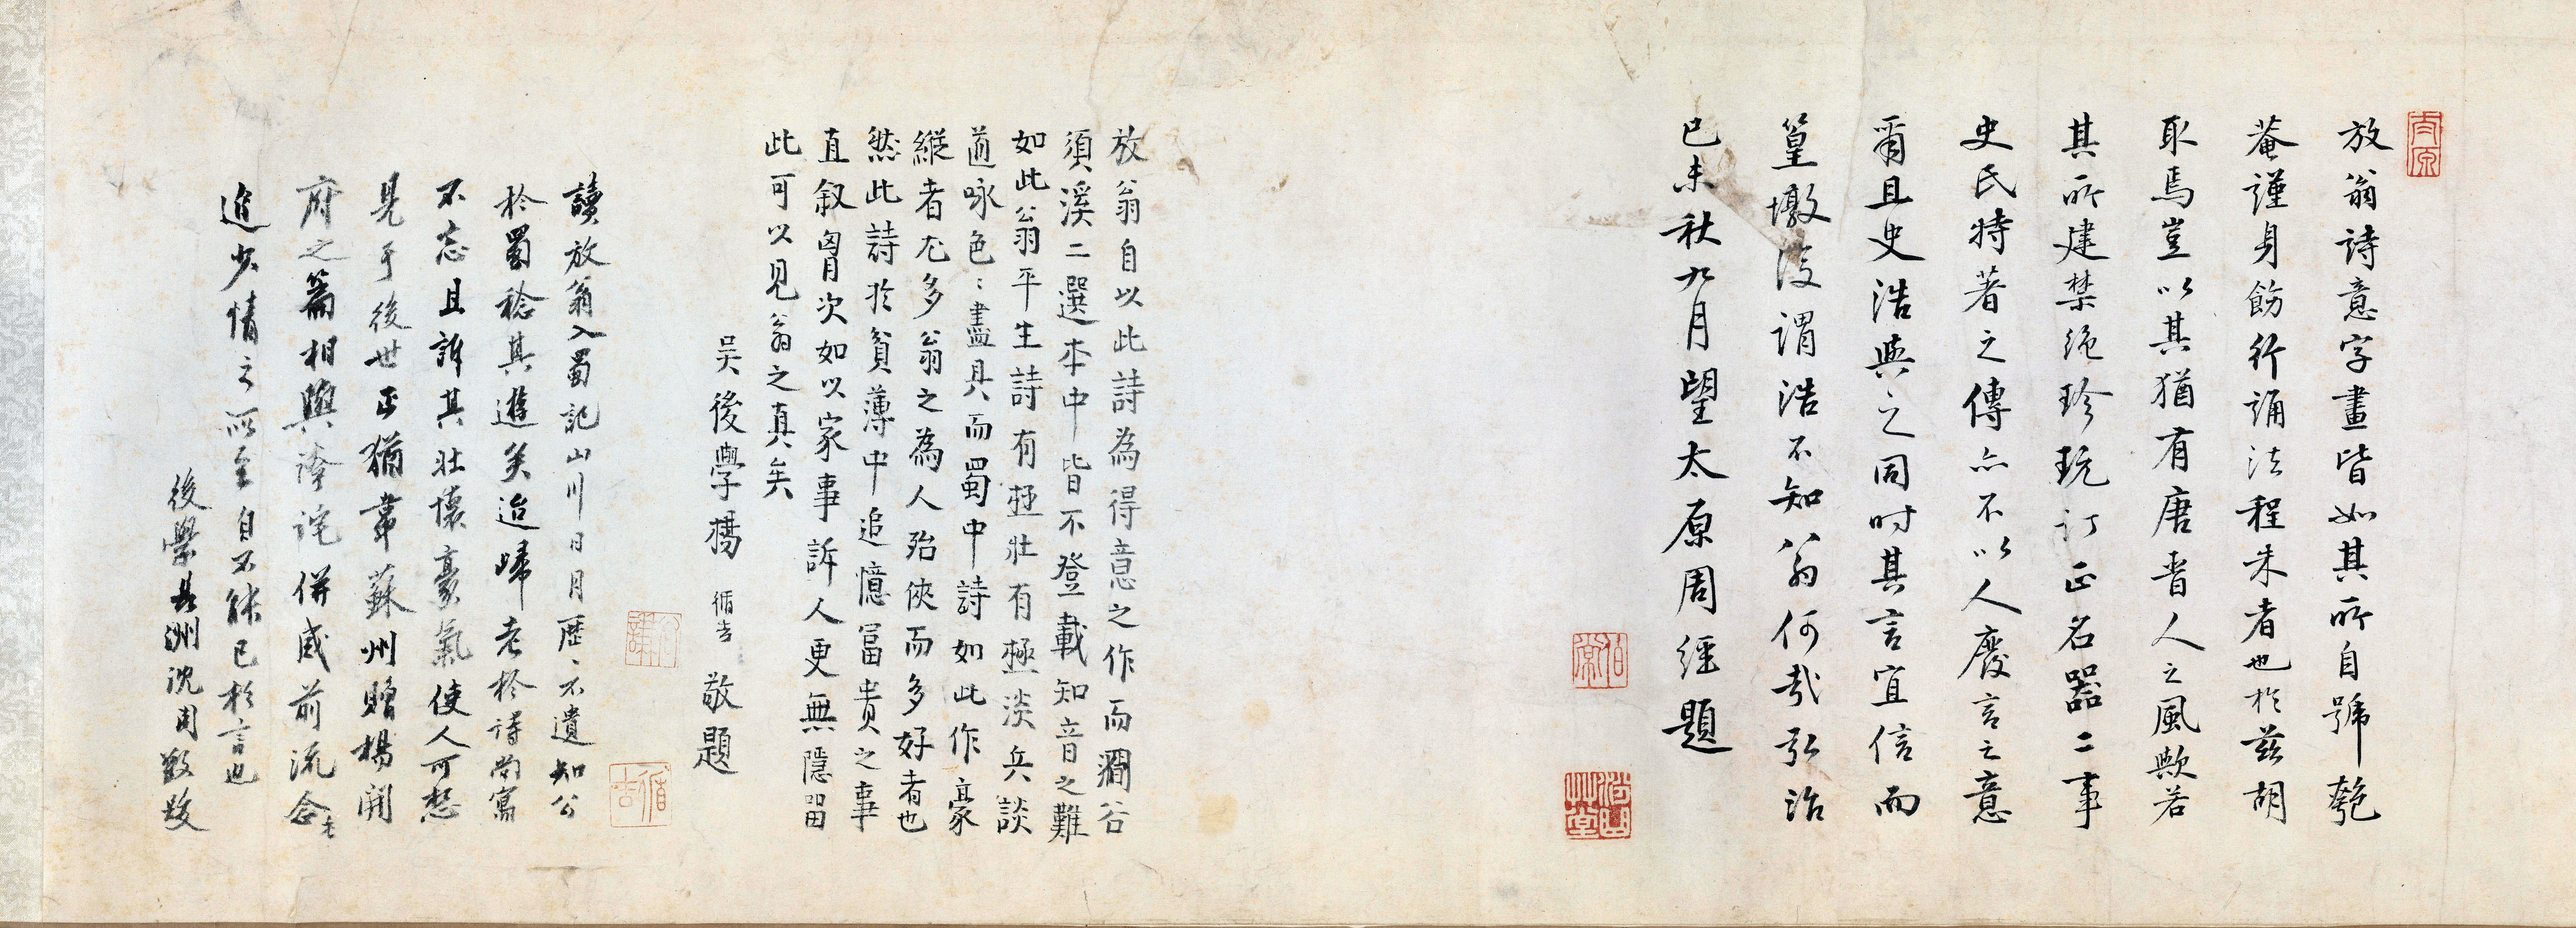 放翁詩意字畫皆如其所自號匏
菴謹身飭行誦法程朱者也於茲胡
取焉豈以其猶有唐晉人之風歟若
其所建禁絕珍玩訂正名器二事
史氏特著之傳亦不以人廢言之意
爾且史浩與之同時其言宜信而
篁墩後謂浩不知翁何哉弘治
己未秋九月望太原周經題
放翁自以此詩為得意之作而澗谷
須溪二選本中皆不登載知音之難
如此翁平生詩有極壯有極淡兵談
道咏色〻盡具而蜀中詩如此作豪
縱者尤多翁之為人殆俠而多好者也
然此詩於貧薄中追憶富貴之事
直叙胷次如以家事訴人更無隱畱
此可以見翁之真矣
吴後學楊循吉敬題
讀放翁入蜀記山川日月歷〻不遺知公
於蜀稔其遊矣迨歸老於詩尚寫
不忘且訴其壯懷豪氣使人可想
見于後世正猶韋蘇州贈楊開
府之篇相與誇詫併感前流念老
追少情之所至自不能已於言也
後學長洲沈周敬跋
太原
伯常
循吉